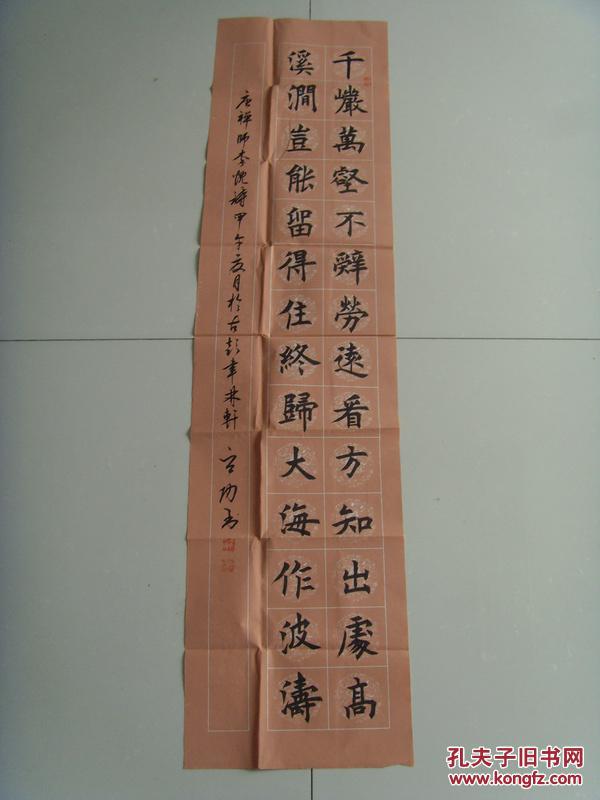 千巖萬壑不辭勞遠看方知出處高
溪澗豈能留得住終歸大海作波濤
唐禪師李忱詩甲午夏月於古彭聿林軒
孔夫子旧书网
www.kongfz.com